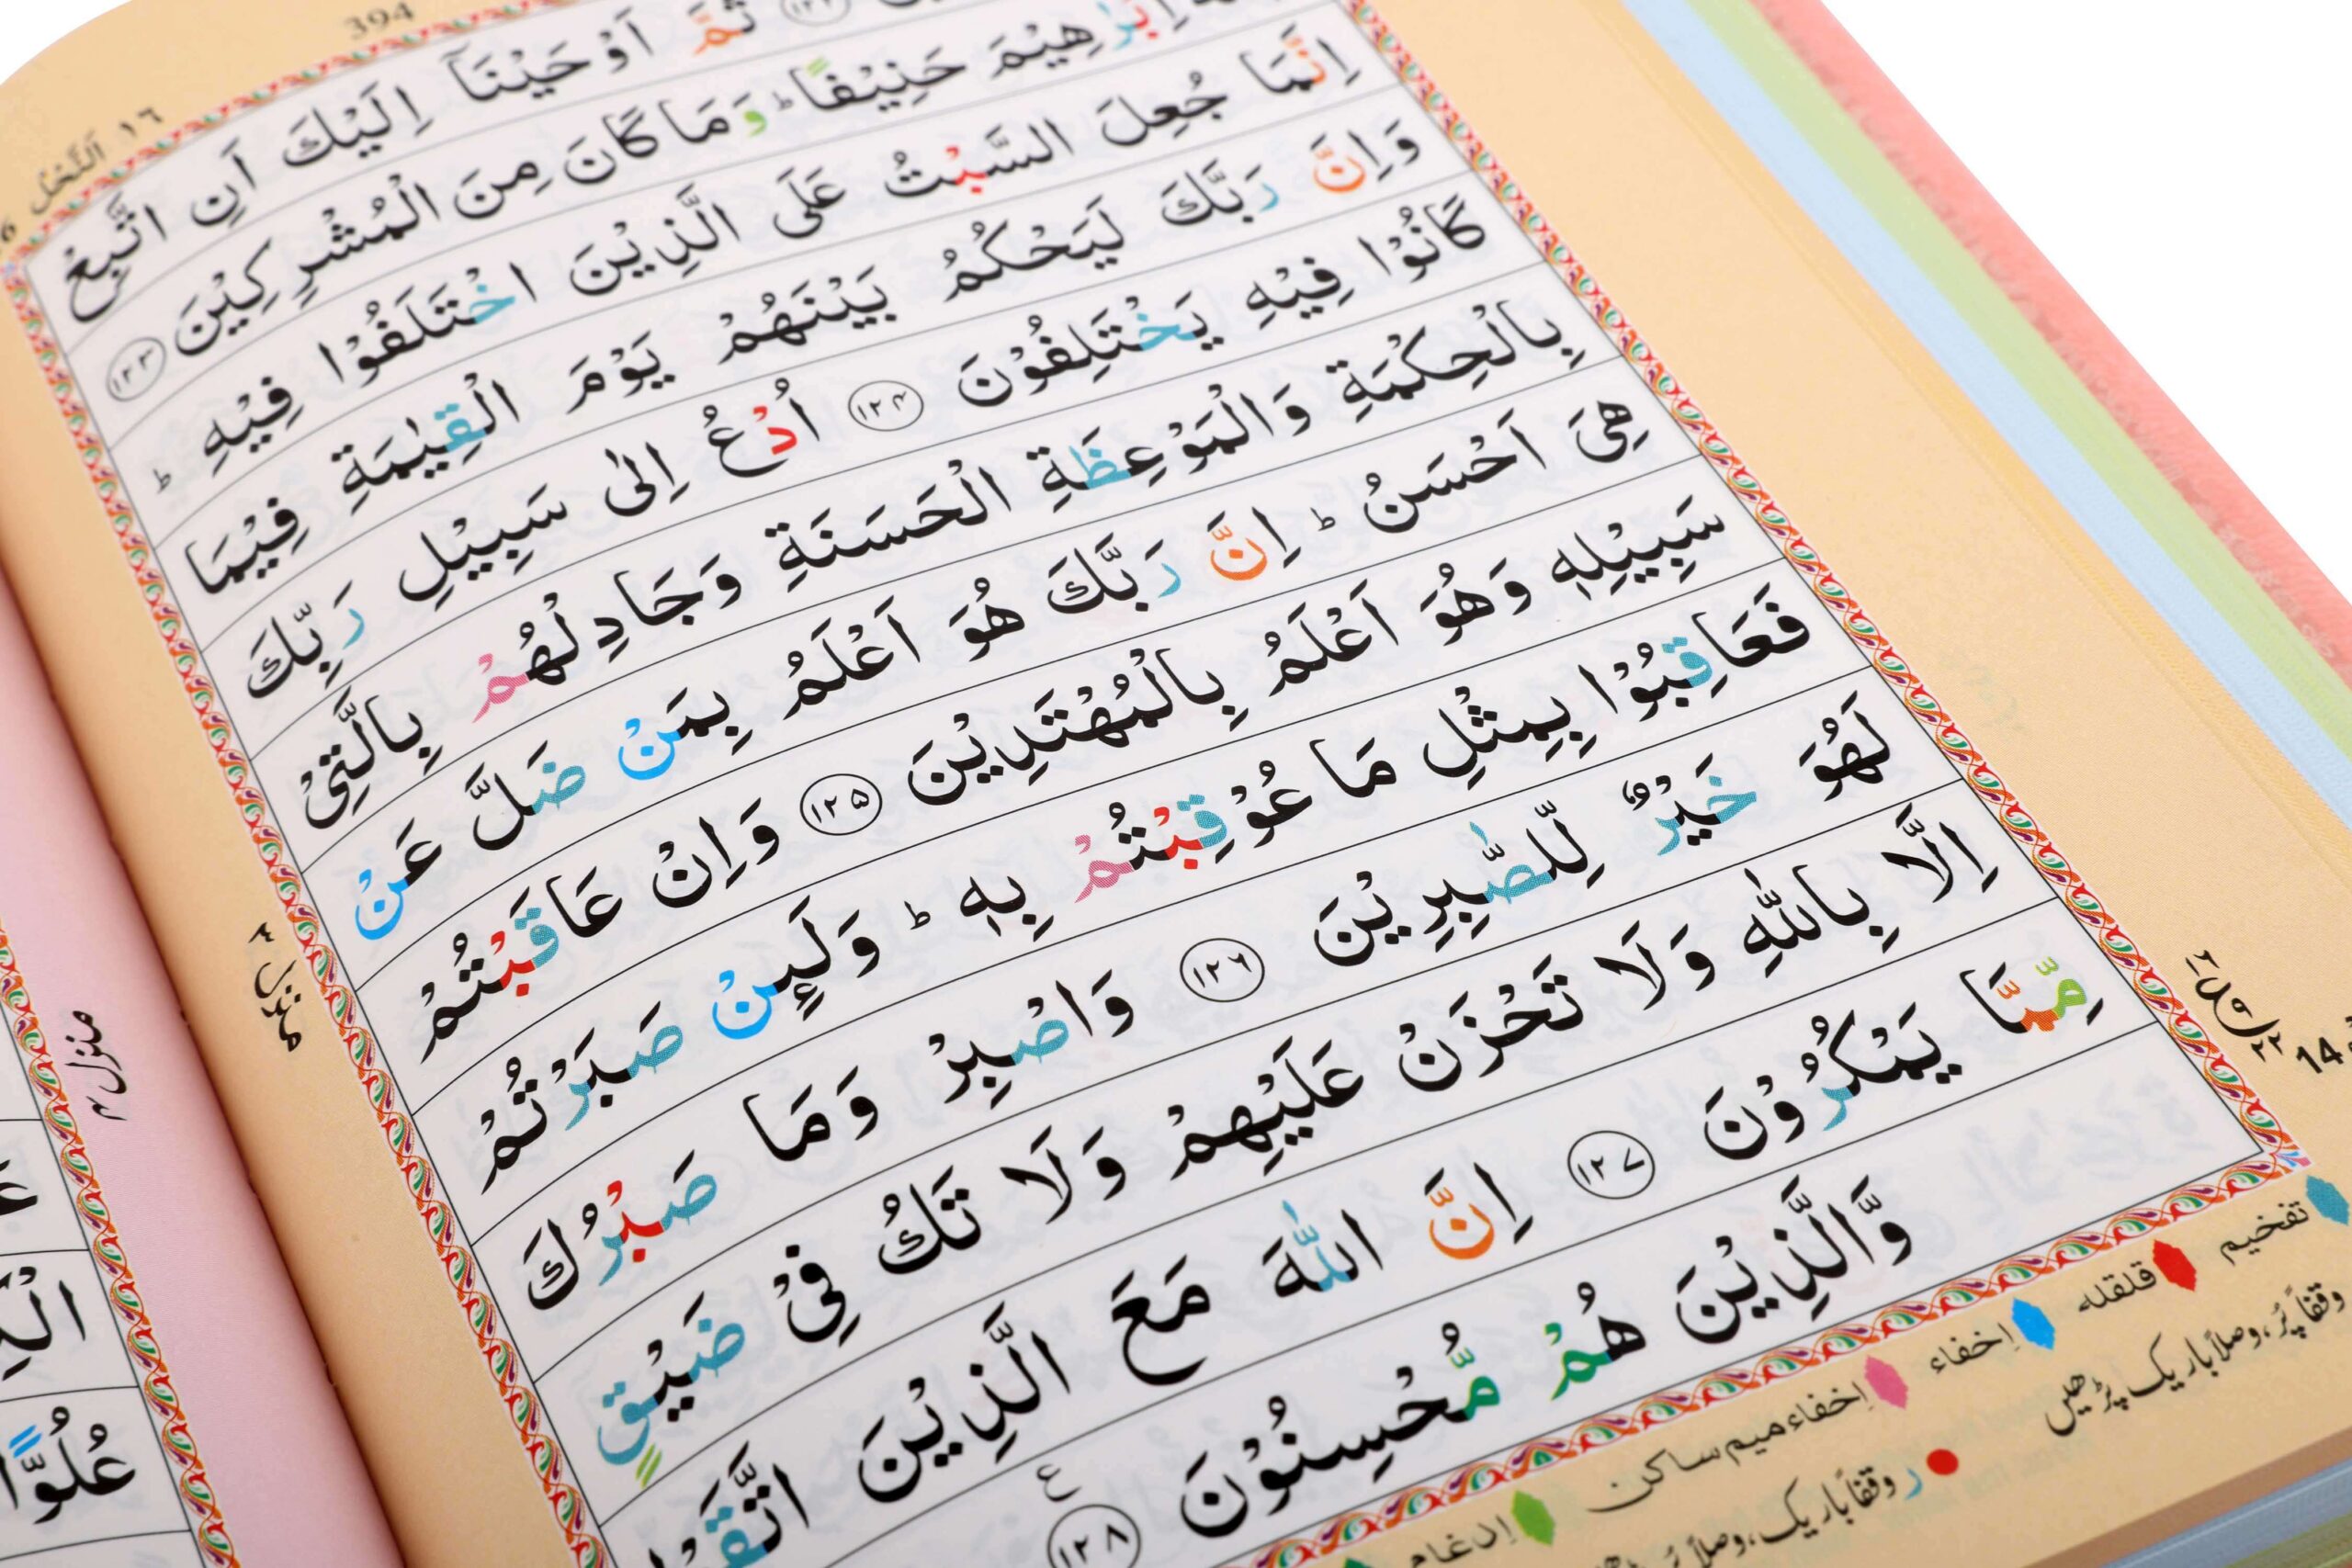 394
١٦ اَلنَّحْل
ثُمَّ اَوْحَيْنَآ اِلَيْكَ اَنِ اتَّبِعْ
اِبْرٰهِيْمَ حَنِيْفًا ؕ وَمَا كَانَ مِنَ الْمُشْرِكِيْنَ ۝۱۲۳
اِنَّمَا جُعِلَ السَّبْتُ عَلَى الَّذِيْنَ اخْتَلَفُوْا فِيْهِ ؕ
وَاِنَّ رَبَّكَ لَيَحْكُمُ بَيْنَهُمْ يَوْمَ الْقِيٰمَةِ فِيْمَا
كَانُوْا فِيْهِ يَخْتَلِفُوْنَ ۝۱۲۴ اُدْعُ اِلٰى سَبِيْلِ رَبِّكَ
بِالْحِكْمَةِ وَالْمَوْعِظَةِ الْحَسَنَةِ وَجَادِلْهُمْ بِالَّتِىْ
هِىَ اَحْسَنُ ؕ اِنَّ رَبَّكَ هُوَ اَعْلَمُ بِمَنْ ضَلَّ عَنْ
سَبِيْلِهٖ وَهُوَ اَعْلَمُ بِالْمُهْتَدِيْنَ ۝۱۲۵ وَاِنْ عَاقَبْتُمْ
فَعَاقِبُوْا بِمِثْلِ مَا عُوْقِبْتُمْ بِهٖ ؕ وَلَئِنْ صَبَرْتُمْ
لَهُوَ خَيْرٌ لِّلصّٰبِرِيْنَ ۝۱۲۶ وَاصْبِرْ وَمَا صَبْرُكَ
اِلَّا بِاللّٰهِ وَلَا تَحْزَنْ عَلَيْهِمْ وَلَا تَكُ فِىْ ضَيْقٍ
مِّمَّا يَمْكُرُوْنَ ۝۱۲۷ اِنَّ اللّٰهَ مَعَ الَّذِيْنَ اتَّقَوْا
وَّالَّذِيْنَ هُمْ مُّحْسِنُوْنَ ۝۱۲۸
ع
منزل ۳
منزل ۴
عُلُوًّا
تفخيم قلقله اخفاء اخفاء ميم ساكن ادغام
وقفاً پُر، وصلاً باریک پڑھیں
ر وقفاً باریک، وصلاً